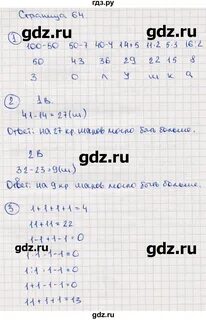 Страница 64.
gdz.ru
1 100-50 50-7 40-4 14+5 11·2 5·3 16:2
50 43 36 29 22 15 8
З О Л У Ш К А
gdz.ru gdz.ru
2 1В.
41-14=27(ш)
Ответ: на 27 кр. шаров могло быть больше.
2В
32-23=9(ш)
gdz.ru gdz.ru
Ответ: на 9 кр. шаров могло быть больше.
3 1+1+1+1=4
11+11=22
1-1+1-1=0
gdz.ru
1:1-1·1=0
1·1-1·1=0
1:1·1-1=0
1+1-1-1=0
gdz.ru gdz.ru
11+1+1=13